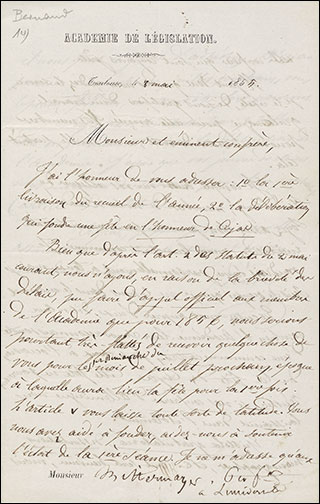 Benaud
14)
ACADEMIE DE LÉGISLATION.
Toulouse, 8 mai 1855.
Monsieur et éminent confrère,
J'ai l'honneur de vous adresser : 1º la 1ère
livraison du recueil de l'année, 2º la délibération
qui fonde une fête en l'honneur de Cujas
Bien que d'après l'art. 2 des statuts du 2 mai
courant, nous n'ayons, en raison de la brièveté des
délais, pu faire d'appel officiel aux membres
de l'Académie que pour 1856, nous serions
pourtant très flattés de recevoir quelque chose de
vous pour le mois de juillet prochain, époque
à laquelle aura lieu la fête pour la 1ère fois
L'article V vous laisse toute sorte de latitude. Vous
nous avez aidé à fonder, aidez-nous à soutenir
l'éclat de la 1ère séance. Je n'en adresse qu'aux
Monsieur
à l'université